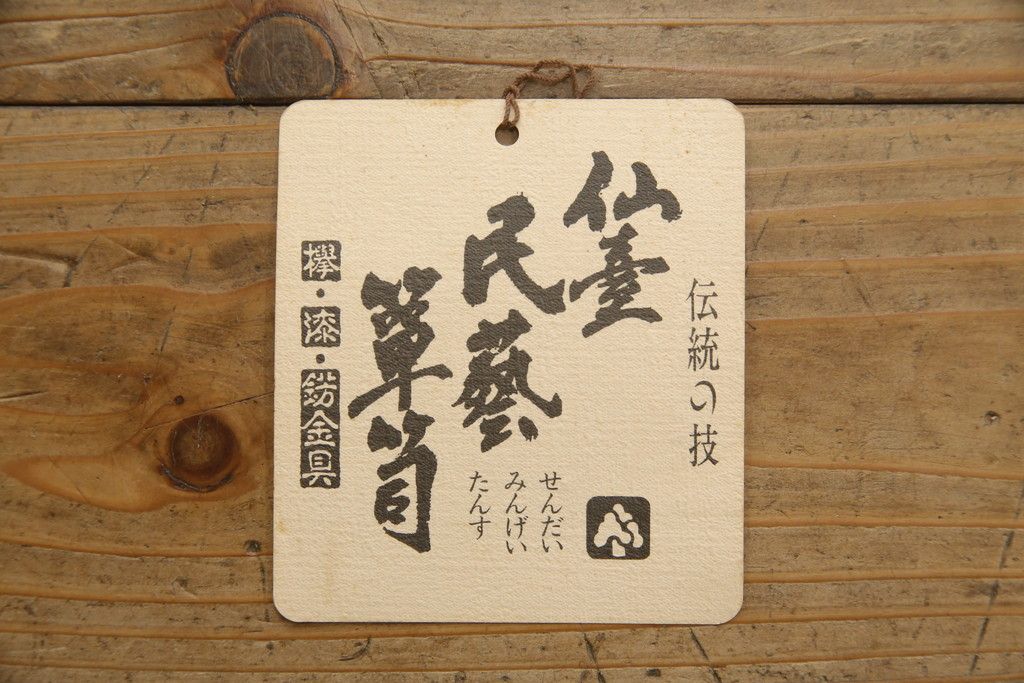 伝統の技
仙臺
民藝
箪笥
せんだい
みんげい
たんす
欅・漆・錺金具